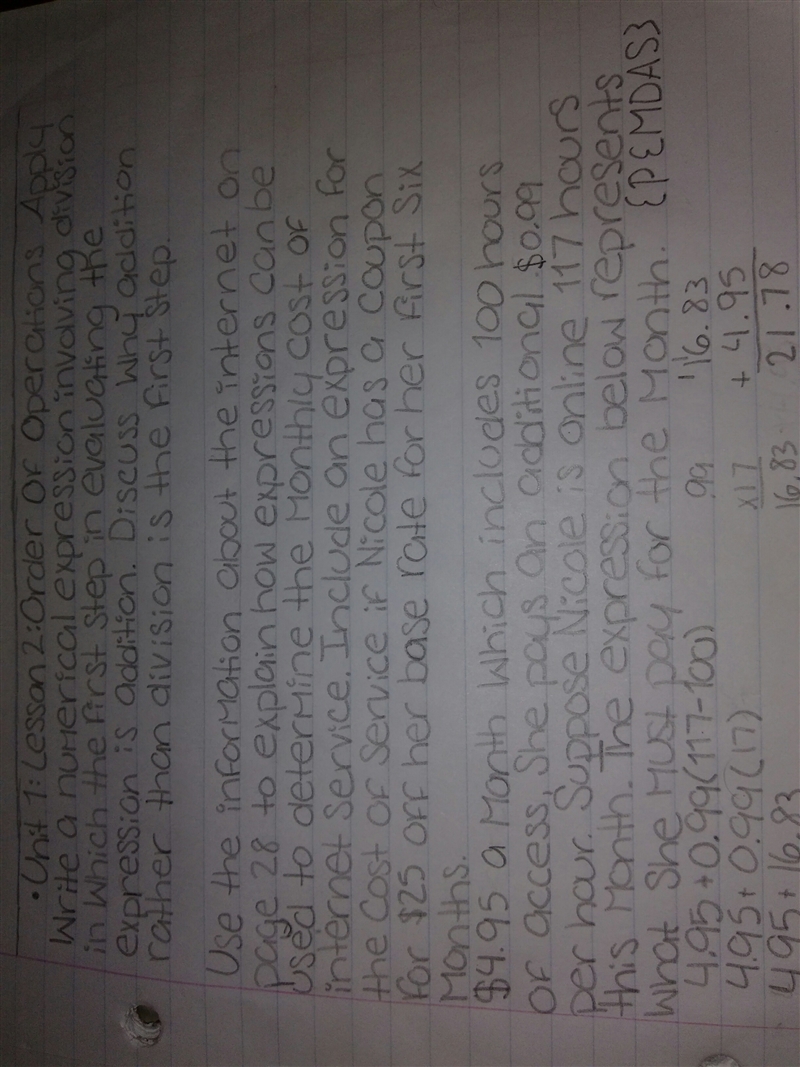 • Unit 1: Lesson 2: Order Of Operations Apply
Write a numerical expression involving division
in which the first step in evaluating the
expression is addition. Discuss why addition
rather than division is the first step.
Use the information about the internet on
page 28 to explain how expressions can be
used to determine the Monthly cost of
internet service. Include an expression for
the cost of service if Nicole has a coupon
for $25 off her base rate for her first six
Months.
$4.95 a Month which includes 100 hours
of access, She pays an additional $0.99
per hour. Suppose Nicole is online 117 hours
this Month. The expression below represents
What She Must pay for the Month. {PEMDAS}
4.95+0.99(117-100) .99 16.83
4.95+0.99(17) x17 + 4.95
4.95+16.83 16.83 21.78